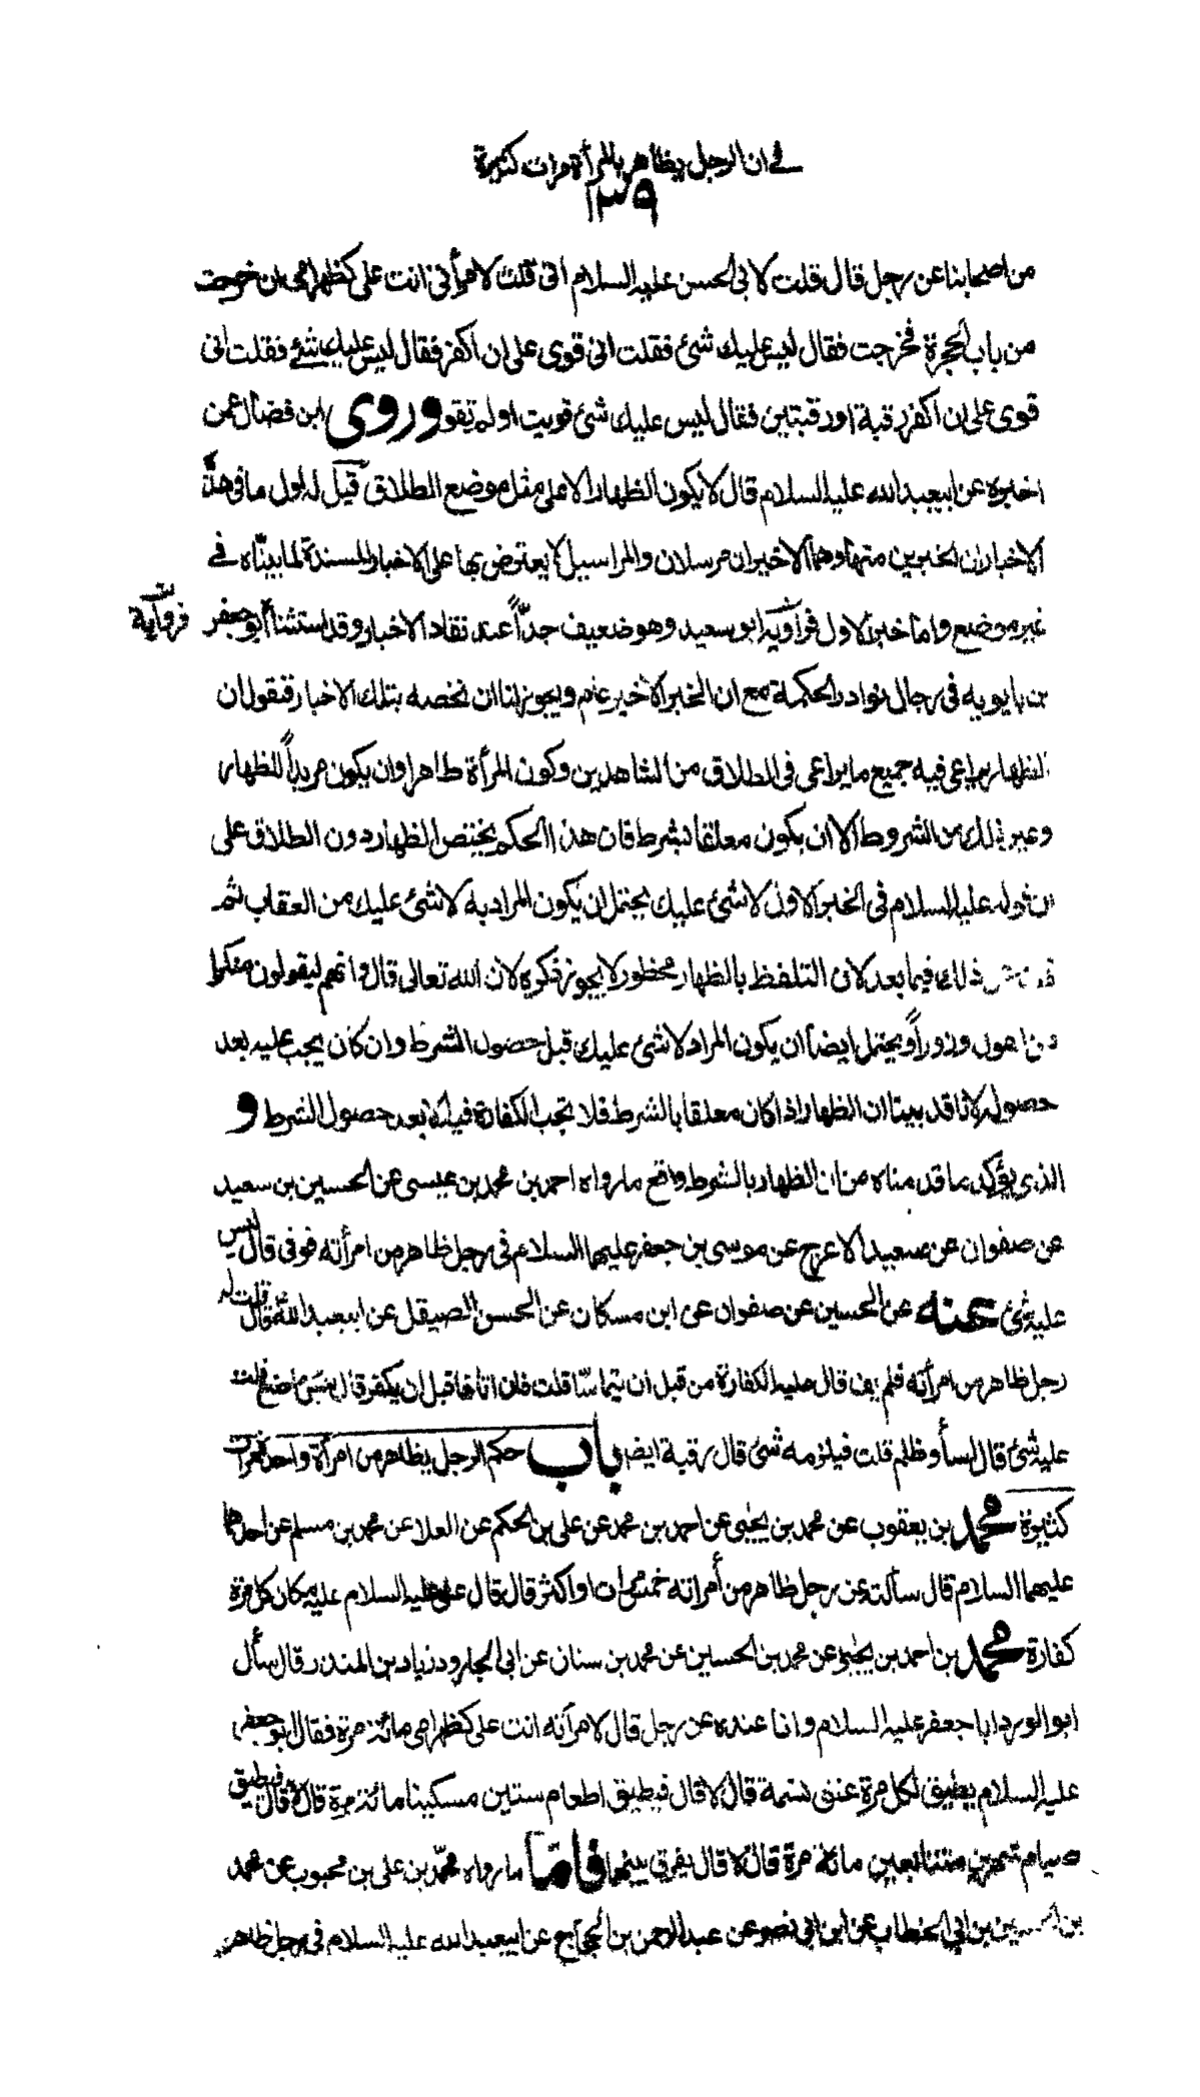 في ان الرجل يظاهر بالمرأة مرات كثيرة
١٣٩
من اصحابنا عن رجل قال قلت لابى الحسن عليه السلام انى قلت لامرأتى انت على كظهر امى ان خرجت
من باب الحجرة فخرجت فقال ليس عليك شئ فقلت انى قوى على ان اكفر فقال ليس عليك شئ فقلت انى
قوى على ان اكفر رقبة او رقبتين فقال ليس عليك شئ قويت او لم تقو وروى ابن فضال عمن
اخبره عن ابيعبد الله عليه السلام قال لا يكون الظهار الا على مثل موضع الطلاق قيل له اول ما في هذه
الاخبار ان الخبرين منها وهما الاخيران مرسلان والمراسيل لا يعترض بها على الاخبار المسندة لما بيناه في
غير موضع واما خبر الاول فراويه ابو سعيد وهو ضعيف جدّاً عند نقاد الاخبار وقد استثناه ابو جعفر
بن بابويه في رجال نوادر الحكمة مع ان الخبر الاخير عام ويجوز لنا ان نخصه بتلك الاخبار فنقول ان
الظهار يراعى فيه جميع ما يراعى فى الطلاق من الشاهدين وكون المرأة طاهرا وان يكون مريداً للظهار
وغير ذلك من الشروط الا ان يكون معلقا بشرط فان هذا الحكم يختص الظهار دون الطلاق على
ان قوله عليه السلام فى الخبر الاول لا شئ عليك يحتمل ان يكون المراد به لا شئ عليك من العقاب ثم
ذلك فيما بعد لان التلفظ بالظهار محظور لا يجوز ذكره لان الله تعالى قال وانهم ليقولون منكرا
من القول وزوراً ويحتمل ايضا ان يكون المراد لا شئ عليك قبل حصول الشرط وان كان يجب عليه بعد
حصوله لانا قد بينا ان الظهار اذا كان معلقا بالشرط فلا تجب الكفارة فيه الا بعد حصول الشرط و
الذى يؤكد ما قدمناه من ان الظهار بالشرط واقع ما رواه احمد بن محمد بن عيسى عن الحسين بن سعيد
عن صفوان عن سعيد الاعرج عن موسى بن جعفر عليهما السلام فى رجل ظاهر من امرأته فوفى قال ليس
عليه شئ عنه عن الحسين عن صفوان عن ابن مسكان عن الحسن الصيقل عن ابيعبد الله قال قلت له
رجل ظاهر من امرأته فلم يف قال عليه الكفارة من قبل ان يتماسّا قلت فان اتاها قبل ان يكفر قال بئس ما صنع قلت
عليه شئ قال اسأ وظلم قلت فيلزمه شئ قال رقبة ايضا باب حكم الرجل يظاهر من امرأة واحدة مرات
كثيرة محمد بن يعقوب عن محمد بن يحيى عن احمد بن محمد عن على بن الحكم عن العلا عن محمد بن مسلم عن احدهما
عليهما السلام قال سألته عن رجل ظاهر من أمراته خمس مرات او اكثر قال قال على عليه السلام عليه مكان كل مرة
كفارة محمد بن احمد بن يحيى عن محمد بن الحسين عن محمد بن سنان عن ابى الجارود زياد بن المنذر قال سأل
ابو الورد ابا جعفر عليه السلام وانا عنده عن رجل قال لامرأته انت على كظهر امى مائة مرة فقال ابو جعفر
عليه السلام يطيق لكل مرة عتق نسمة قال لا قال فيطيق اطعام ستين مسكينا مائة مرة قال لا قال فيطيق
صيام شهرين متتابعين مائة مرة قال لا قال يفرق بينهما فاما ما رواه محمّد بن على بن محبوب عن محمد
بن الحسين بن ابى الخطاب عن ابن ابى نصر عن عبد الرحمن بن الحجاج عن ابيعبد الله عليه السلام فى رجل ظاهر